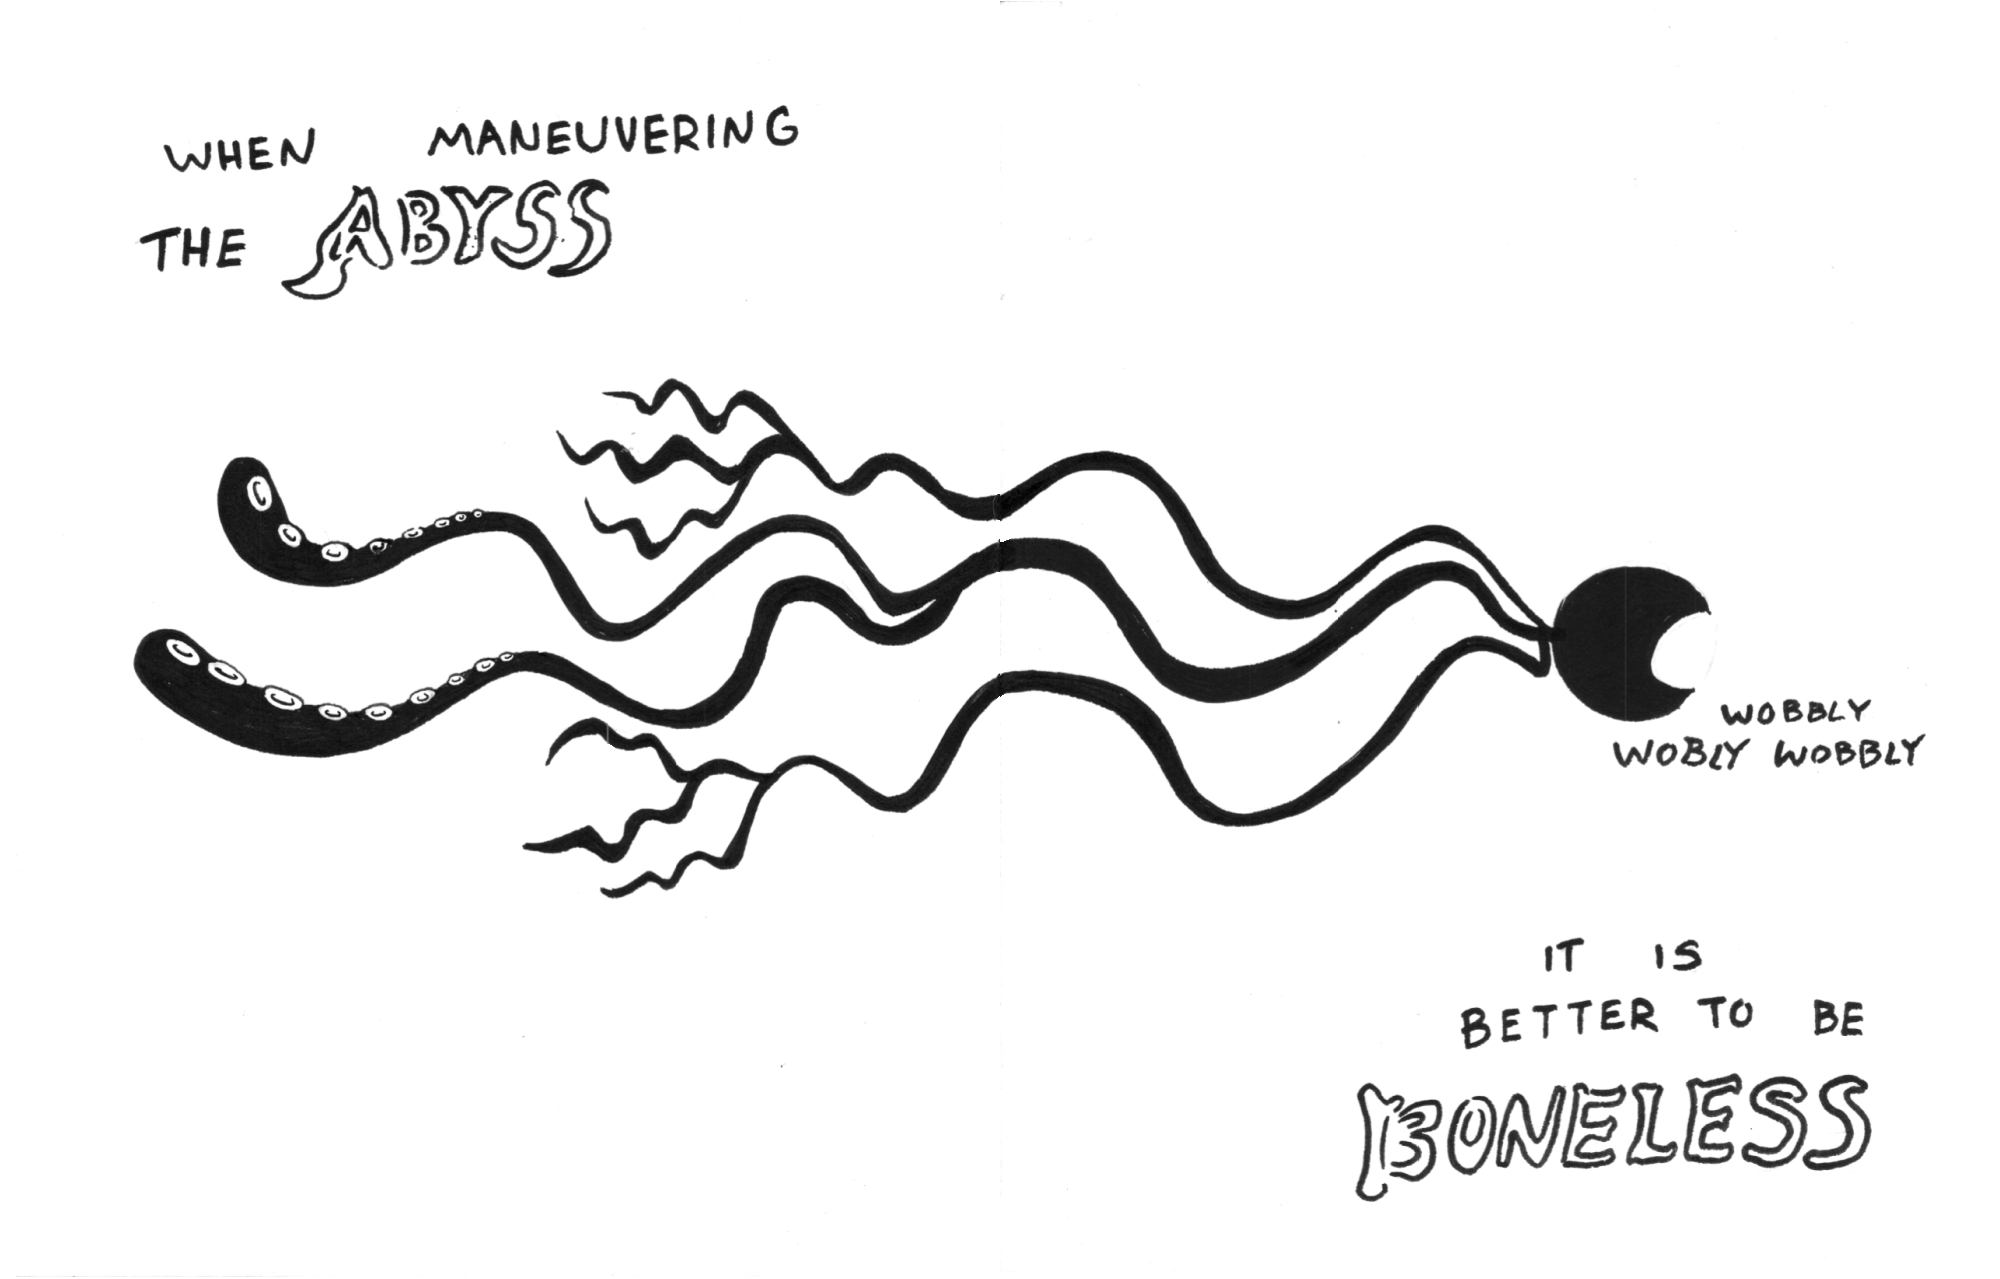 WHEN MANEUVERING
THE ABYSS
WOBBLY
WOBLY WOBBLY
IT IS
BETTER TO BE
BONELESS